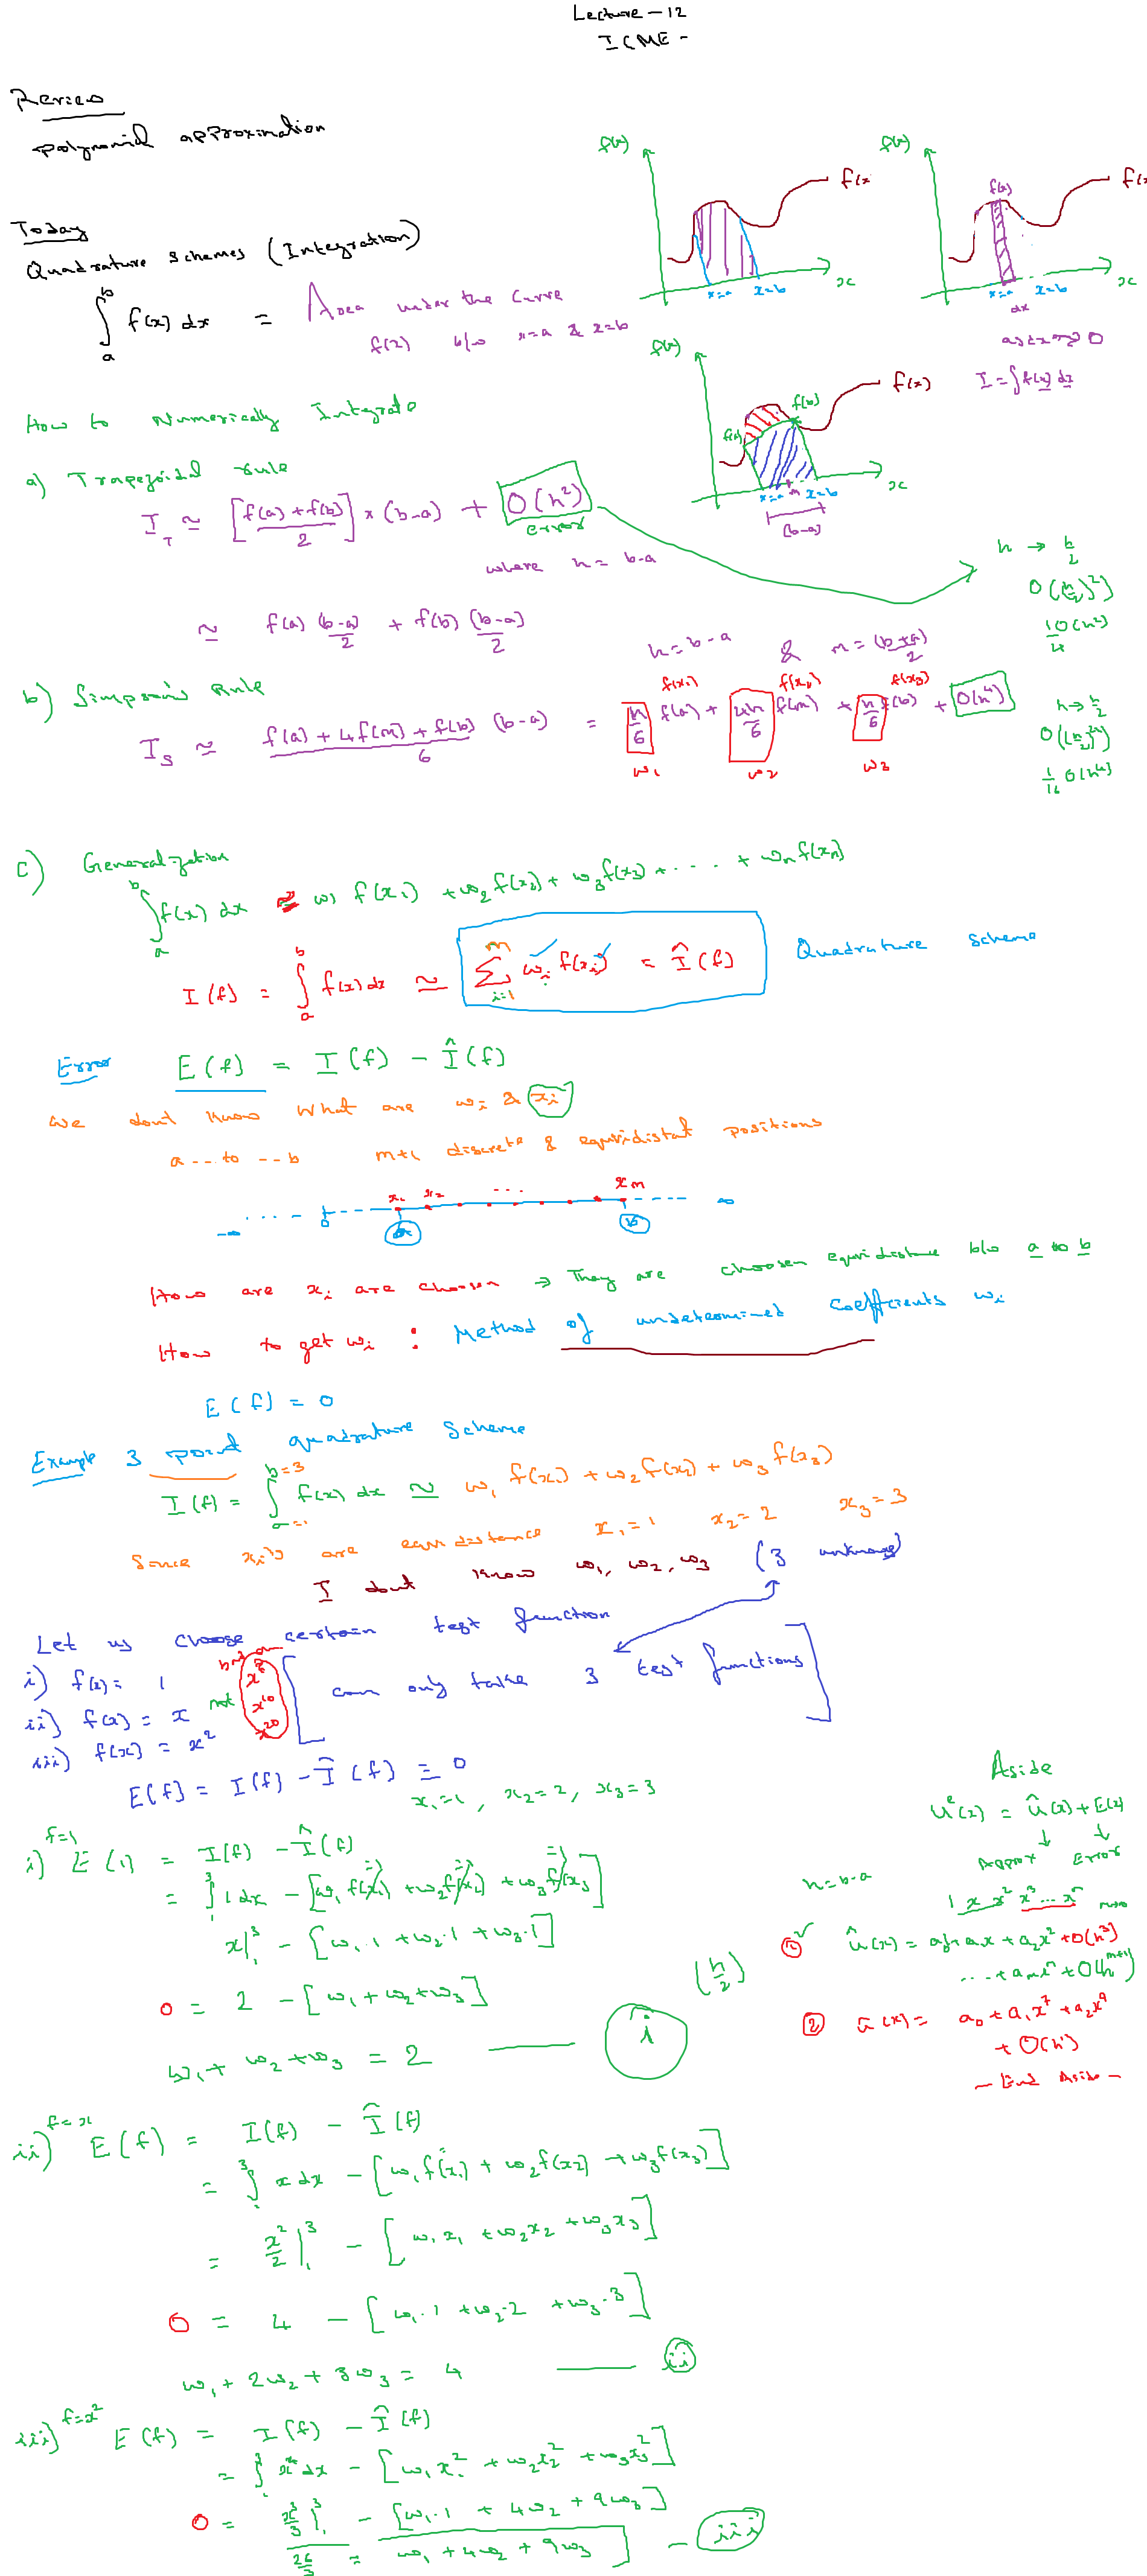 Lecture - 12
ICME -
Review
Polynomial approximation
Today
Quadrature schemes (Integration)
∫_a^b f(x) dx = Area under the curve
f(x) b/w x=a & x=b
f(x) f(x) x=a x=b x
f(x) f(x) f(x) x=a x=b x
dx
as dx → 0
I = ∫ f(x) dx
f(x) f(x) f(a) f(b) x=a m x=b x
(b-a)
How to Numerically Integrate
a) Trapezoidal rule
I_T ≃ [f(a) + f(b) / 2] × (b-a) + O(h²)
error
where h = b-a
h → h/2
O((h/2)²)
1/4 O(h²)
≃ f(a) (b-a)/2 + f(b) (b-a)/2
h = b-a & m = (b+a)/2
b) Simpson's Rule
f(x₁) f(x₂) f(x₃)
I_S ≃ f(a) + 4f(m) + f(b) / 6 (b-a) = h/6 f(a) + 4h/6 f(m) + h/6 f(b) + O(h⁴)
w₁ w₂ w₃
h → h/2
O((h/2)⁴)
1/16 O(h⁴)
c) Generalization
∫_a^b f(x) dx ≈ w₁ f(x₁) + w₂ f(x₂) + w₃ f(x₃) + .... + wₙ f(xₙ)
I(f) = ∫_a^b f(x) dx ≃ Σ_{i=1}^m w_i f(x_i) = Î(f) Quadrature scheme
Error E(f) = I(f) - Î(f)
we dont know what are w_i & x_i
a -- to -- b m+1 discrete & equidistat positions
x₁ x₂ ... x_m
-∞ .... 0 a b ∞
How are x_i are chosen → They are choosen equidistance b/w a to b
How to get w_i : Method of undetermined coefficients w_i
E(f) = 0
Example 3 point quadrature scheme
I(f) = ∫_{a=1}^{b=3} f(x) dx ≃ w₁ f(x₁) + w₂ f(x₂) + w₃ f(x₃)
Since x_i's are equidistance x₁=1 x₂=2 x₃=3
I dont know w₁, w₂, w₃ (3 unknowns)
Let us choose certain test function
i) f(x) = 1
ii) f(x) = x
iii) f(x) = x²
not x¹⁰ x²⁰
[can only take 3 test functions]
E(f) = I(f) - Î(f) = 0
x₁=1, x₂=2, x₃=3
i) f=1 E(1) = I(f) - Î(f)
= ∫_1^3 1 dx - [w₁ f(x₁) + w₂ f(x₂) + w₃ f(x₃)]
=1 =1 =1
x|_1^3 - [w₁·1 + w₂·1 + w₃·1]
0 = 2 - [w₁ + w₂ + w₃]
(h/2)
w₁ + w₂ + w₃ = 2 —— i
Aside
u^e(x) = û(x) + E(x)
Approx Error
h = b-a
1 x x² x³ ... xⁿ
û(x) = a₀ + a₁x + a₂x² + O(h³)
... + aₙxⁿ + O(h^{n+1})
② û(x) = a₀ + a₁x⁷ + a₂x⁹
+ O(h¹)
- End Aside -
ii) f=x E(f) = I(f) - Î(f)
= ∫_1^3 x dx - [w₁ f(x₁) + w₂ f(x₂) + w₃ f(x₃)]
= x²/2|_1^3 - [w₁x₁ + w₂x₂ + w₃x₃]
0 = 4 - [w₁·1 + w₂·2 + w₃·3]
w₁ + 2w₂ + 3w₃ = 4 —— ii
iii) f=x² E(f) = I(f) - Î(f)
= ∫_1^3 x² dx - [w₁x₁² + w₂x₂² + w₃x₃²]
0 = x³/3|_1^3 - [w₁·1 + 4w₂ + 9w₃]
26/3 = w₁ + 4w₂ + 9w₃] - iii